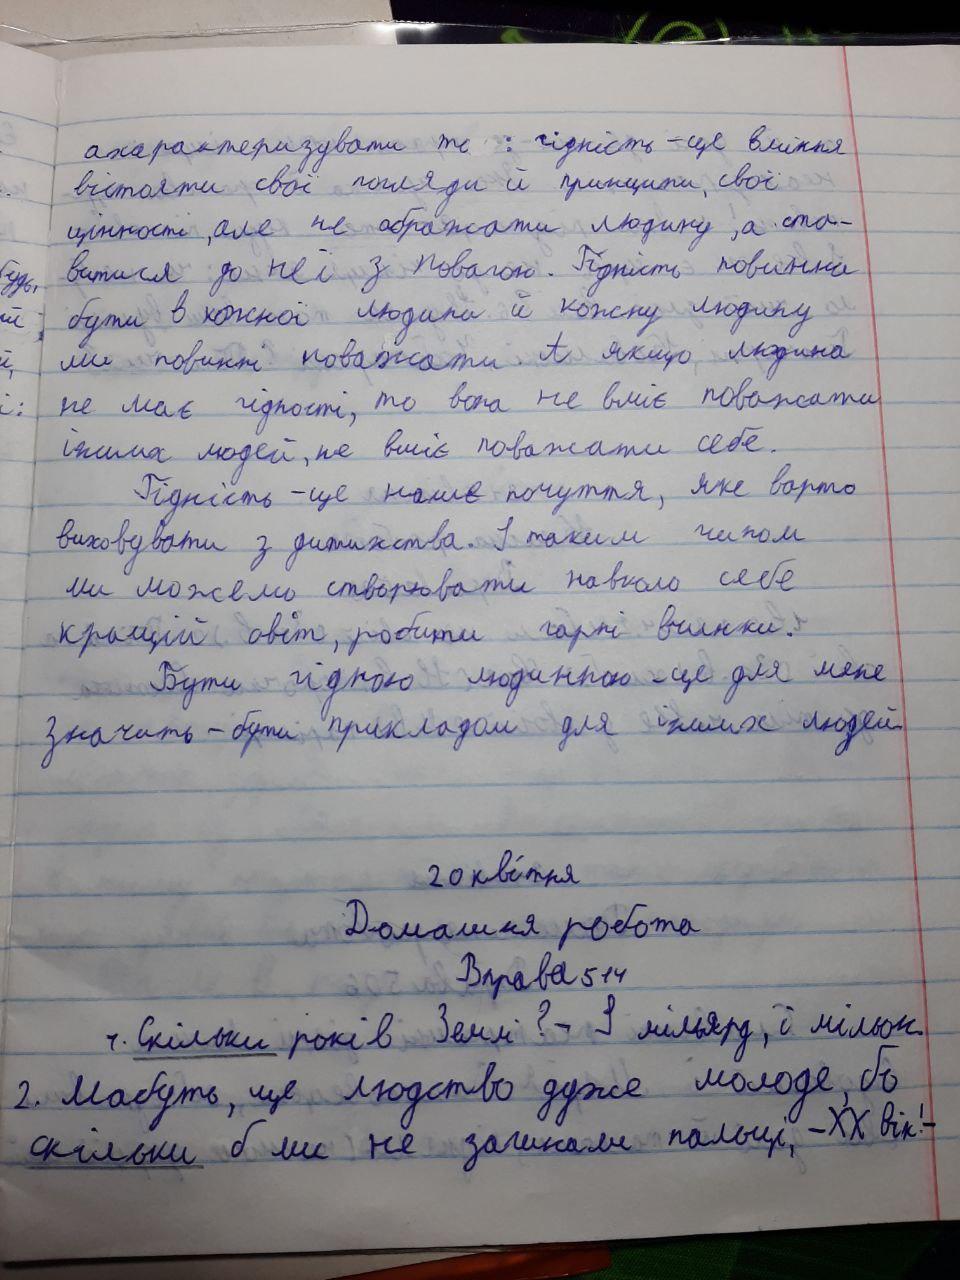 ахарактеризувати то : гідність - це вміння
вістояти свої погляди й принципи, свої
цінності, але не ображати людину, а ста-
витися до неї з повагою. Гідність повинна
бути в кожної людини й кожну людину
ми повинні поважати А якщо, людина
не має гідності, то вона не вміє поважати
інших людей, не вміє поважати себе.
Гідність - це наше почуття, яке варто
виховувати з дитинства. І таким чином
ми можемо створювати навколо себе
кращій світ, робити гарні вчинки.
Бути гідною людинною - це для мене
значить - бути прикладом для інших людей.
20 квітня
Домашня робота
Вправа 514
1. Скільки років Землі? - І мільярд, і мільон.
2. Мабуть, ще людство дуже молоде, бо
скільки б ми не загинали пальці, - XX вік! -
будь,
й,
і: